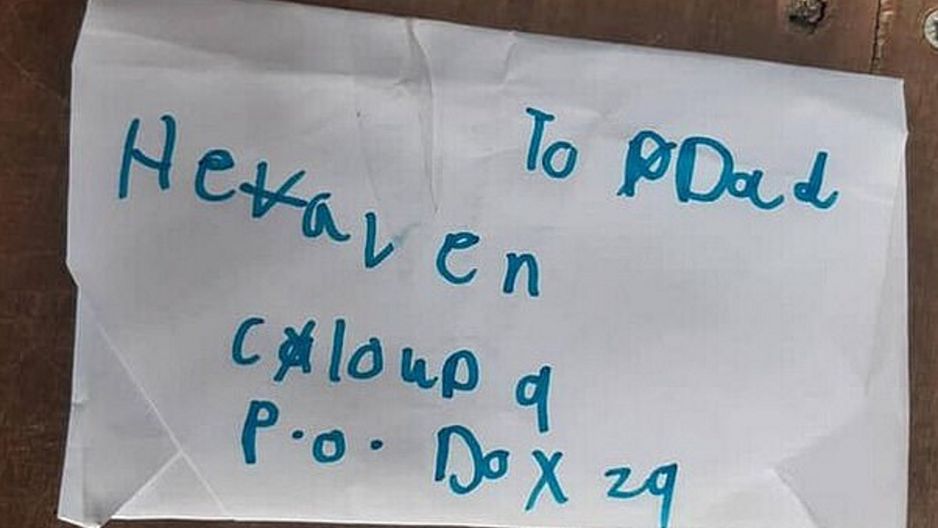 To Dad
Heaven
cloup 9
P.o. Dox 29